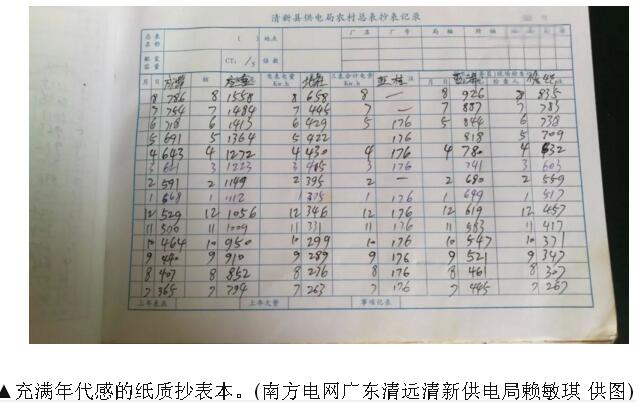 清新县供电局农村总表抄表记录
总表名称 ( ) 地点 厂名 厂号 局编 附编
配变容量 CT: /5 倍数
月 日 电表电量 Kw.h 三表合计电量 Kw.h 注 月 日 检查人
8 786 8 1558 8 658 8 — 8 926 8 835
7 754 7 1484 7 445 7 — 7 887 7 783
6 718 6 1413 6 429 5 176 5 844 6 738
5 691 5 1364 5 422 176 818 5 709
4 643 4 1272 4 430 4 176 4 780 4 632
3 601 3 1223 3 405 3 176 741 3 603
2 591 2 1149 2 395 2 — 2 680 2 559
1 568 1 1112 1 375 1 176 1 699 1 517
12 529 12 1056 12 346 12 176 12 619 12 457
11 500 11 1009 11 331 11 176 11 583 11 417
10 464 10 950 10 299 10 176 10 547 10 371
9 440 9 910 9 289 9 176 9 521 9 347
8 407 8 852 8 276 8 176 8 461 8 307
7 365 7 794 7 263 7 176 7 445 7 267
上年表底 上年欠费 事项记录
▲充满年代感的纸质抄表本。(南方电网广东清远清新供电局赖敏琪 供图)